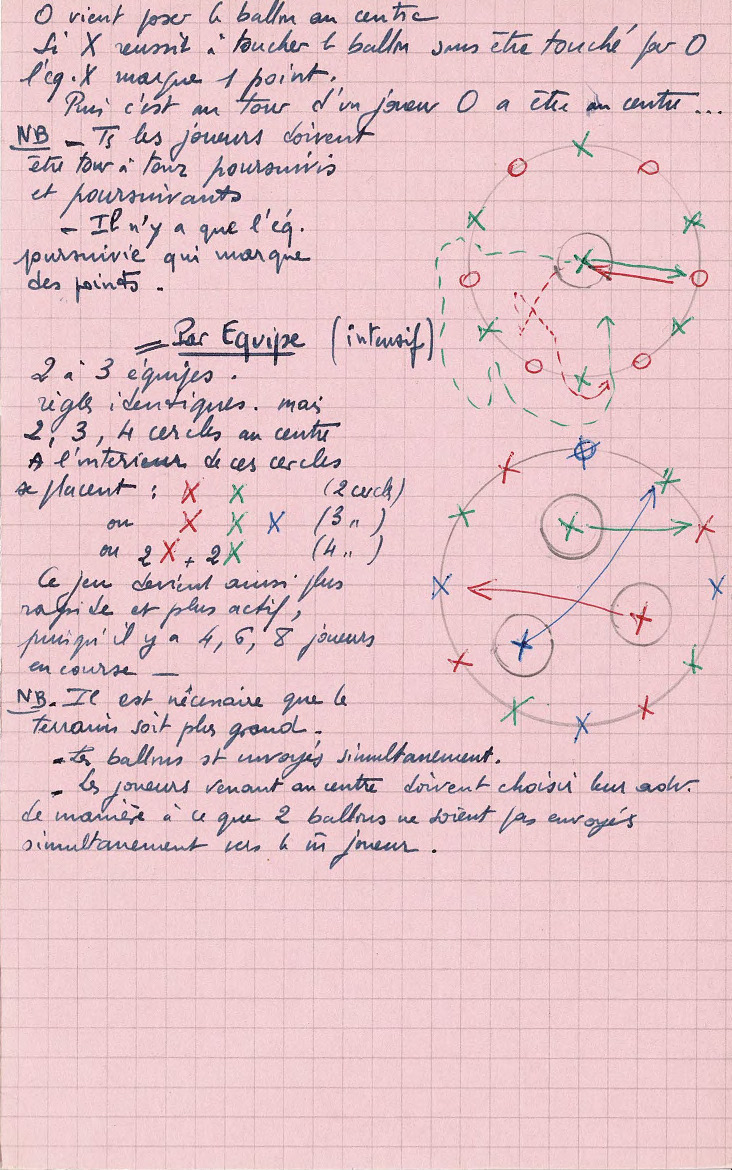 O vient poser le ballon au centre
Si X reussit à toucher le ballon sans être touché par O
l'éq. X marque 1 point.
Puis c'est au tour d'un joueur O a être au centre...
NB - Ts les joueurs doivent
être tour à tour poursuivis
et poursuivants
- Il n'y a que l'éq.
poursuivie qui marque
des points.
= Par Equipe (intensif)
2 à 3 équipes.
règles identiques. mais
2, 3, 4 cercles au centre
A l'intérieur de ces cercles
se placent : X X (2 cercles)
ou X X X (3 " )
ou 2X + 2X (4 " )
Ce jeu devient ainsi plus
rapide et plus actif,
puisqu'il y a 4, 6, 8 joueurs
en course -
NB. Il est nécessaire que le
terrain soit plus grand.
- Les ballons st envoyés simultanement.
- Les joueurs venant au centre doivent choisir leur adv.
de manière à ce que 2 ballons ne soient pas envoyés
simultanement vers le m̄ joueur.